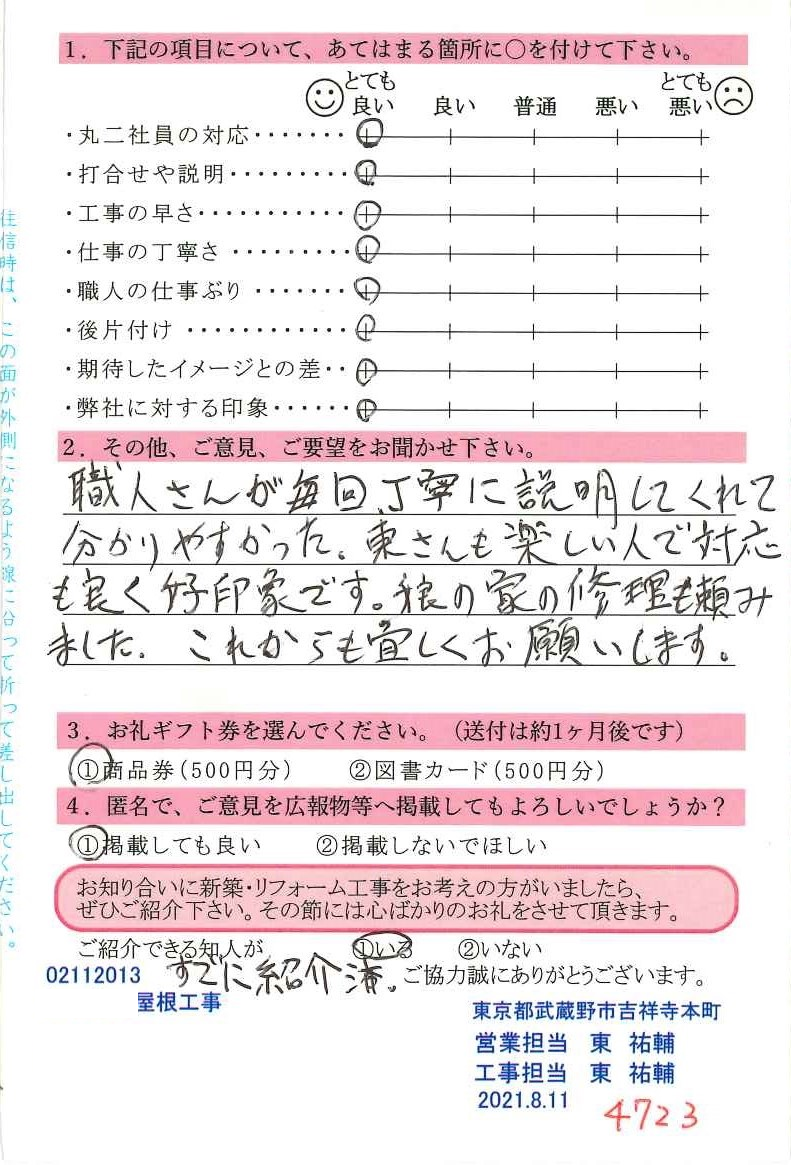 1．下記の項目について、あてはまる箇所に○を付けて下さい。
とても良い 良い 普通 悪い とても悪い
・丸二社員の対応・・・・・・・
・打合せや説明・・・・・・・・・
・工事の早さ・・・・・・・・・・・
・仕事の丁寧さ・・・・・・・・・
・職人の仕事ぶり・・・・・・・
・後片付け・・・・・・・・・・・・
・期待したイメージとの差・・
・弊社に対する印象・・・・・・
2．その他、ご意見、ご要望をお聞かせ下さい。
職人さんが毎回、丁寧に説明してくれて
分かりやすかった。東さんも楽しい人で対応
も良く好印象です。娘の家の修理も頼み
ました。これからも宜しくお願いします。
3．お礼ギフト券を選んでください。（送付は約1ヶ月後です）
①商品券（500円分） ②図書カード（500円分）
4．匿名で、ご意見を広報物等へ掲載してもよろしいでしょうか？
①掲載しても良い ②掲載しないでほしい
お知り合いに新築・リフォーム工事をお考えの方がいましたら、
ぜひご紹介下さい。その節には心ばかりのお礼をさせて頂きます。
ご紹介できる知人が ①いる ②いない
すでに紹介済。
ご協力誠にありがとうございます。
02112013
屋根工事
東京都武蔵野市吉祥寺本町
営業担当 東 祐輔
工事担当 東 祐輔
2021.8.11
4723
往信時は、この面が外側になるよう線に沿って折って差し出してください。